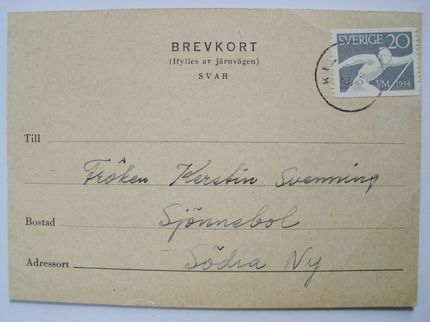 SVERIGE 20
VM 1954
BREVKORT
(Ifylles av Järnvägen)
SVAR
Till
Fröken Kerstin Svenning
Bostad Sjönnebol
Adressort Södra Ny